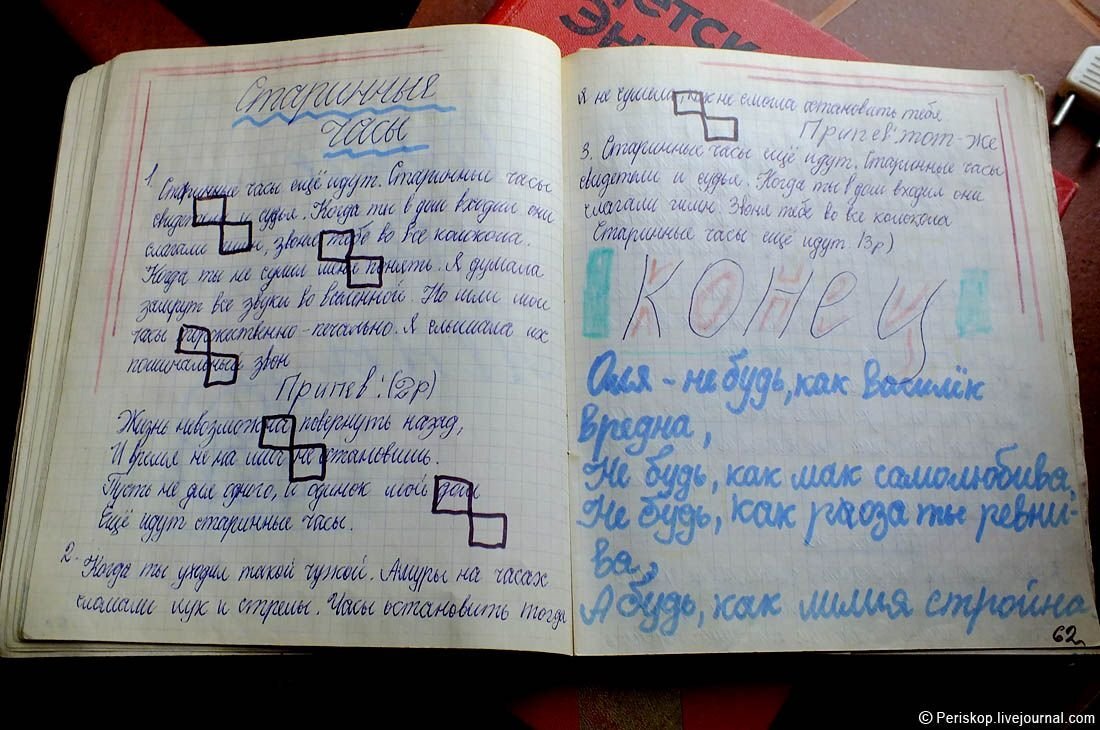 Детск
Эн
Старинные
часы
1. Старинные часы ещё идут. Старинные часы
свидетели и судья. Когда ты в дом входил они
слагали гимн, звоня тебе во все колокола.
Когда ты не сумел меня понять. Я думала
замрут все звуки во вселенной. Но шли мои
часы торжественно-печально. Я слышала их
поминальный звон
Припев: (2р)
Жизнь невозможно повернуть назад,
И время не на миг не остановишь.
Пусть не для одного, и одинок мой дом
Ещё идут старинные часы.
2. Когда ты уходил такой чужой. Амуры на часах
сломали лук и стрелы. Часы остановить тогда
я не сумела, как не смогла остановить тебя
Припев: тот-же
3. Старинных часы ещё идут. Старинные часы
свидетели и судья. Когда ты в дом входил они
слагали гимн. Звоня тебе во все колокола
Старинные часы ещё идут. (3р)
конец
Оля - не будь, как василёк
вредна,
Не будь, как мак самолюбива,
Не будь, как раоза ты ревни-
ва,
А будь, как лилия стройна
62
© Periskop.livejournal.com